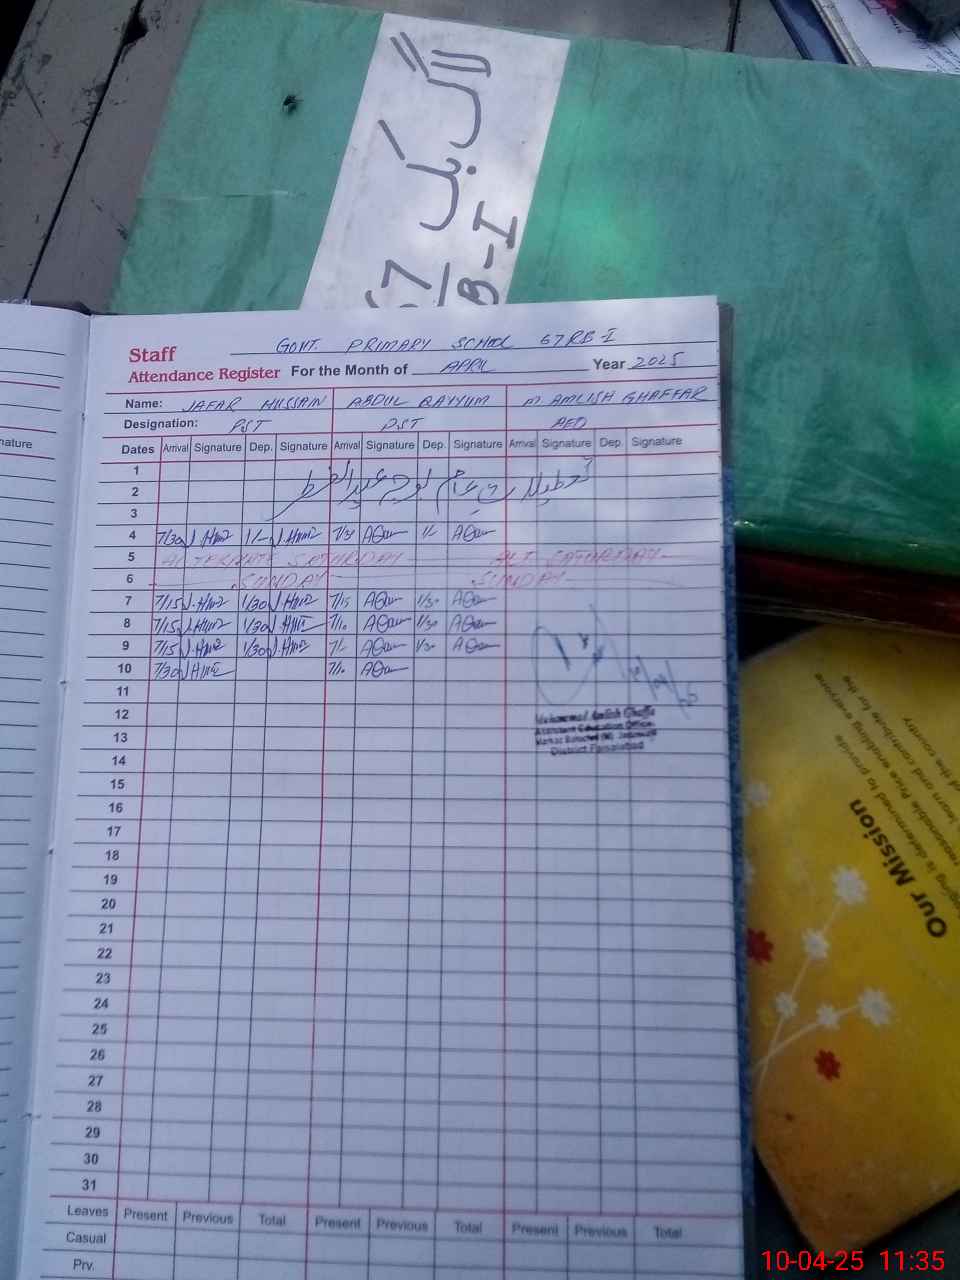 گرلز
67
B-I
Staff
Attendance Register
GOVT. PRIMARY SCHOOL 67RB-I
For the Month of APRIL Year 2025
Name: JAFAR HUSSAIN ABDUL QAYYUM M. AMLISH GHAFFAR
Designation: PST PST AEO
Dates Arrival Signature Dep. Signature Arrival Signature Dep. Signature Arrival Signature Dep. Signature
1
2 تعطیلات عام بوجہ عیدالفطر
3
4 7/30 1/- 7/30 1/-
5 ALTERNATE SATURDAY ALT SATURDAY
6 SUNDAY SUNDAY
7 7/15 1/30 7/15 1/30
8 7/15 1/30 7/10 1/30
9 7/15 1/30 1/30
10 7/30 7/10
11
12
13
14
15
16
17
18
19
20
21
22
23
24
25
26
27
28
29
30
31
Muhammad Amlish Ghaffar
Assistant Education Officer
District Faisalabad
Leaves Present Previous Total Present Previous Total Present Previous Total
Casual
Prv.
nature
Our Mission
is determined to provide
reasonable Price enabling everyone
learn and contribute for the
of the country
10-04-25 11:35